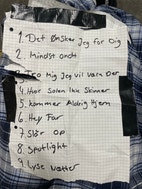 1. Det Ønsker Jeg for Dig
2. Mindst ondt
3. Tro Mig Jeg vil være Der
4. Hvor Solen Ikke Skinner
5. kommer Aldrig Hjem
6. Hey Far
7. Slår op
8. Spotlight
9. Lyse nætter